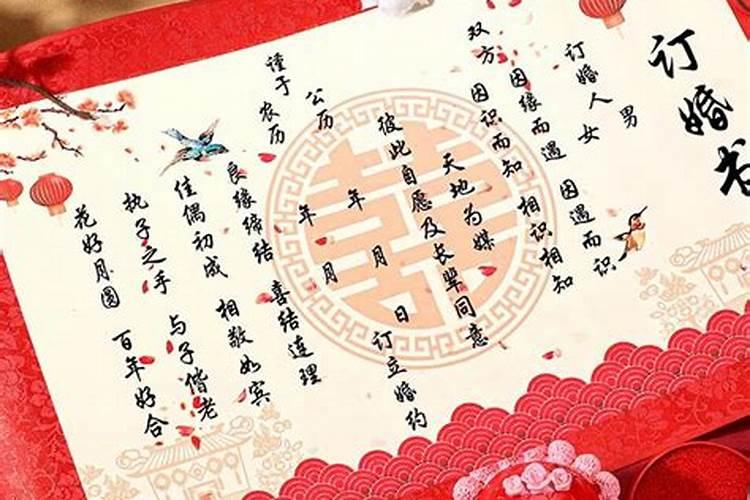 订婚书
订婚人 男
女
双方 因缘而遇 因遇而识
因识而知 相识相知
天地为媒
彼此自愿及长辈同意
谨于 公历 年 月 日订立婚约
农历 年 月
良缘缔结 喜结连理
佳偶初成 相敬如宾
执子之手 与子偕老
花好月圆 百年好合
囍